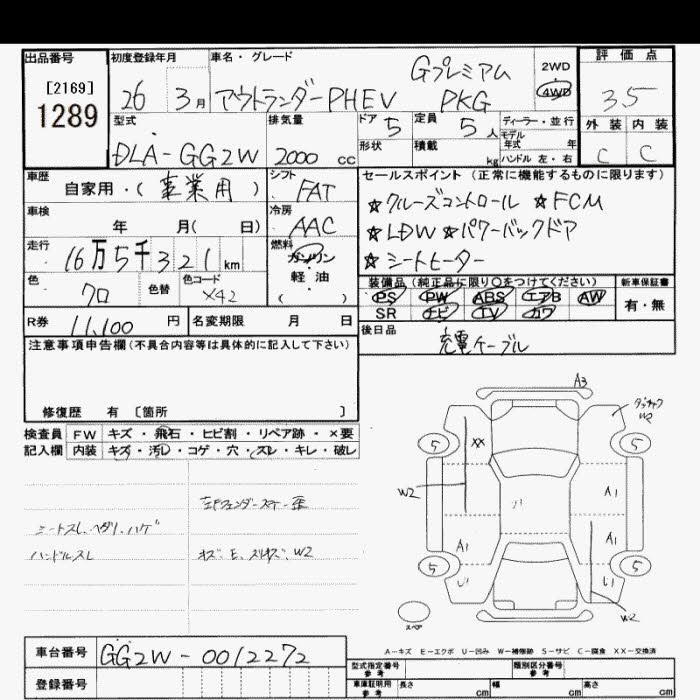 出品番号
[2169]
1289
初度登録年月
26 3月
車名・グレード
Gプレミアム
アウトランダーPHEV PKG
2WD
4WD
評価点
3.5
外装 内装
C C
型式
DLA-GG2W
排気量
2000 cc
ドア 5
定員 5 人
形状
積載 kg
ディーラー・並行
モデル年式 年
ハンドル 左・右
車歴
自家用・(事業用)
シフト
FAT
車検
年 月( 日)
冷房
AAC
走行
16万5千321km
燃料
ガソリン
軽油
( )
色
クロ
色替
色コード
X42
R券 11,100 円
名変期限 月 日
セールスポイント(正常に機能するものに限ります)
☆クルーズコントロール ☆FCM
☆LDW ☆パワーバックドア
☆シートヒーター
装備品(純正品に限り○をつけてください)
PS PW ABS エアB AW
SR ナビ TV カワ
新車保証書
有・無
後日品
充電ケーブル
注意事項申告欄(不具合内容等は具体的に記入して下さい)
修復歴 有 [箇所 ]
検査員記入欄
FW キズ・飛石・ヒビ割・リペア跡・×要
内装 キズ・汚レ・コゲ・穴・スレ・キレ・破レ
シートスレ、ヘタリ、ハゲ
ハンドルスレ
キズ、E、スリキズ、W2
A3
W2
5 5
XX
W2
A1
A1
A1
5 5
U1 U1
W2
スペア
A-キズ E-エクボ U-凹み W-補修跡 S-サビ C-腐食 XX-交換済
車台番号 GG2W-0012272
登録番号
型式指定番号
参考
類別区分番号
参考
車庫証明用
参考
長さ cm 幅 cm 高さ cm